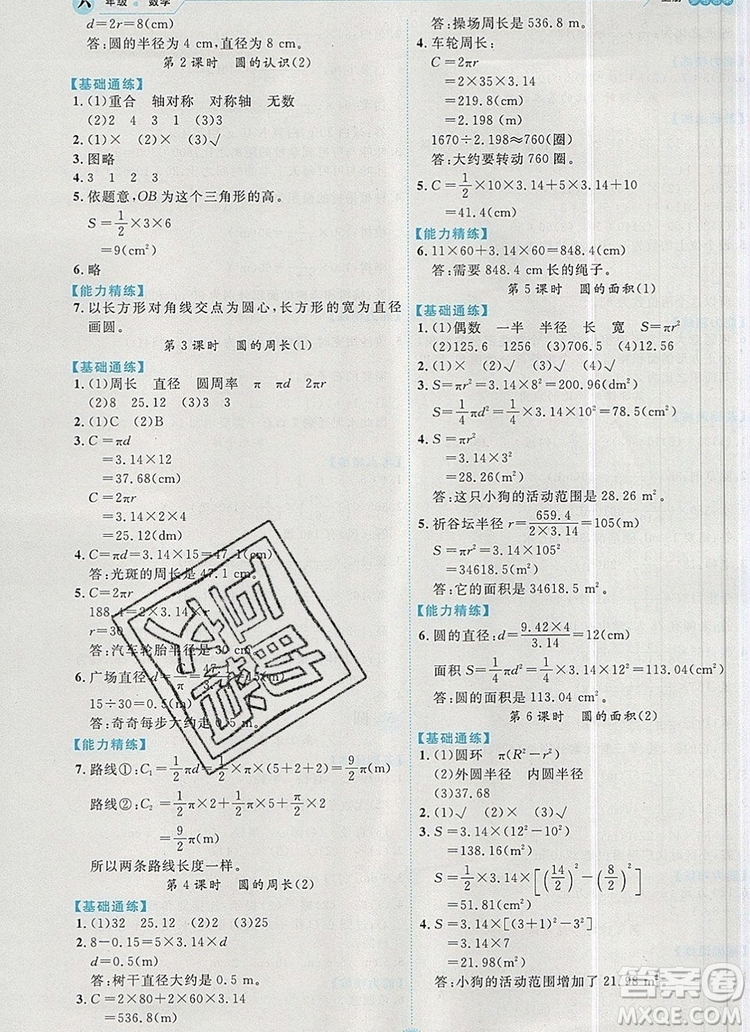 六年级 数学
d=2r=8(cm)
答:圆的半径为 4 cm,直径为 8 cm。
第 2 课时 圆的认识(2)
【基础通练】
1. (1)重合 轴对称 对称轴 无数
(2)2 4 3 1 (3)3
2. (1)× (2)× (3)√
3. 图略
4. 3 1 2 3
5. 依题意,OB 为这个三角形的高。
S=1/2×3×6
=9(cm²)
6. 略
【能力精练】
7. 以长方形对角线交点为圆心,长方形的宽为直径
画圆。
第 3 课时 圆的周长(1)
【基础通练】
1. (1)周长 直径 圆周率 π πd 2πr
(2)8 25.12 (3)3 3
2. (1)C (2)B
3. C=πd
=3.14×12
=37.68(cm)
C=2πr
=3.14×4×2
=25.12(dm)
4. C=πd=3.14×15=47.1(cm)
答:光斑的周长是 47.1 cm。
5. C=2πr
188.4=2×3.14×r
r=30
答:汽车轮胎半径是 30 cm。
6. 广场直径 d=C/π=47.1/π=15(m)
15÷30=0.5(m)
答:奇奇每步大约走 0.5 m。
【能力精练】
7. 路线①:C₁=1/2πd=π/2×(5+2+2)=9/2π(m)
路线②:C₂=1/2π×5+π/2×2+π/2×2
=9/2π(m)
所以两条路线长度一样。
第 4 课时 圆的周长(2)
【基础通练】
1. (1)32 25.12 (2)3.14 (3)25
2. 8-0.15=3.14×5×d
d=0.5
答:树干直径大约是 0.5 m。
3. C=2×80+2×60×3.14
=536.8(m)
答:操场周长是 536.8 m。
4. 车轮周长:
C=2πr
=2×35×3.14
=219.8(cm)
=2.198(m)
1670÷2.198≈760(圈)
答:大约要转动 760 圈。
5. C=1/2×10×3.14+5×3.14+10
=41.4(cm)
【能力精练】
6. 11×60+3.14×60=848.4(cm)
答:需要 848.4 cm 长的绳子。
第 5 课时 圆的面积(1)
【基础通练】
1. (1)偶数 一半 半径 长 宽 S=πr²
(2)125.6 1256 (3)25.12 (4)50.24
2. (1)× (2)√ (3)√ (4)√
3. S=πr²=3.14×8²=200.96(cm²)
S=1/4πd²=1/4×3.14×10²=78.5(cm²)
4. S=πr²=3.14×3²
=28.26(m²)
答:这只小狗的活动范围是 28.26 m²。
5. 祈谷坛半径 r=659.4/(2×3.14)=105(m)
S=πr²=3.14×105²
=34618.5(m²)
答:它的面积是 34618.5 m²。
【能力精练】
6. 圆的直径:d=(9.42×4)/3.14=12(cm)
面积 S=1/4πd²=1/4×3.14×12²=113.04(cm²)
答:圆的面积是 113.04 cm²。
第 6 课时 圆的面积(2)
【基础通练】
1. (1)圆环 π(R²-r²)
(2)外圆半径 内圆半径
(3)37.68
2. (1)√ (2)× (3)×
3. S=3.14×(12²-10²)
=138.16(m²)
S=3.14×1/2×[(14/2)²-(8/2)²]
=51.81(cm²)
4. S=3.14×[(3+1)²-3²]
=3.14×7
=21.98(m²)
答:小狗的活动范围增加了 21.98 m²。
互助文荟
答案圈
MXQE.COM